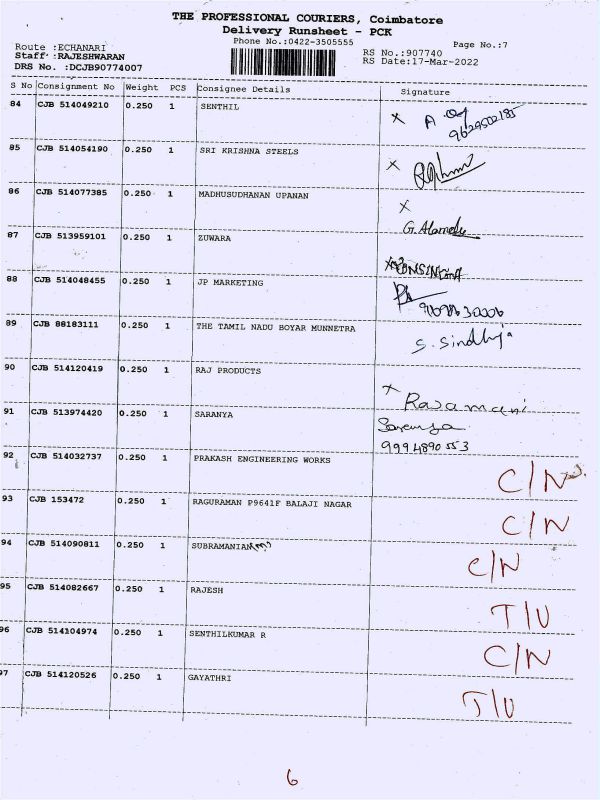 THE PROFESSIONAL COURIERS, Coimbatore
Delivery Runsheet - PCK
Phone No.:0422-3505555
Page No.:7
Route :ECHANARI
RS No.:907740
Staff :RAJESHWARAN
RS Date:17-Mar-2022
DRS No. :DCJB90774007
S No Consignment No Weight PCS Consignee Details Signature
84 CJB 514049210 0.250 1 SENTHIL X
85 CJB 514054190 0.250 1 SRI KRISHNA STEELS X
86 CJB 514077385 0.250 1 MADHUSUDHANAN UPANAN X
G. Alamelu
87 CJB 513959101 0.250 1 ZUWARA
88 CJB 514048455 0.250 1 JP MARKETING
89 CJB 88183111 0.250 1 THE TAMIL NADU BOYAR MUNNETRA S. Sindhuja
90 CJB 514120419 0.250 1 RAJ PRODUCTS X Rajamani
91 CJB 513974420 0.250 1 SARANYA Saranya
9994890553
92 CJB 514032737 0.250 1 PRAKASH ENGINEERING WORKS C/N
93 CJB 153472 0.250 1 RAGURAMAN P9641F BALAJI NAGAR C/N
94 CJB 514090811 0.250 1 SUBRAMANIAN C/N
95 CJB 514082667 0.250 1 RAJESH T/U
96 CJB 514104974 0.250 1 SENTHILKUMAR R C/N
97 CJB 514120526 0.250 1 GAYATHRI T/U
6